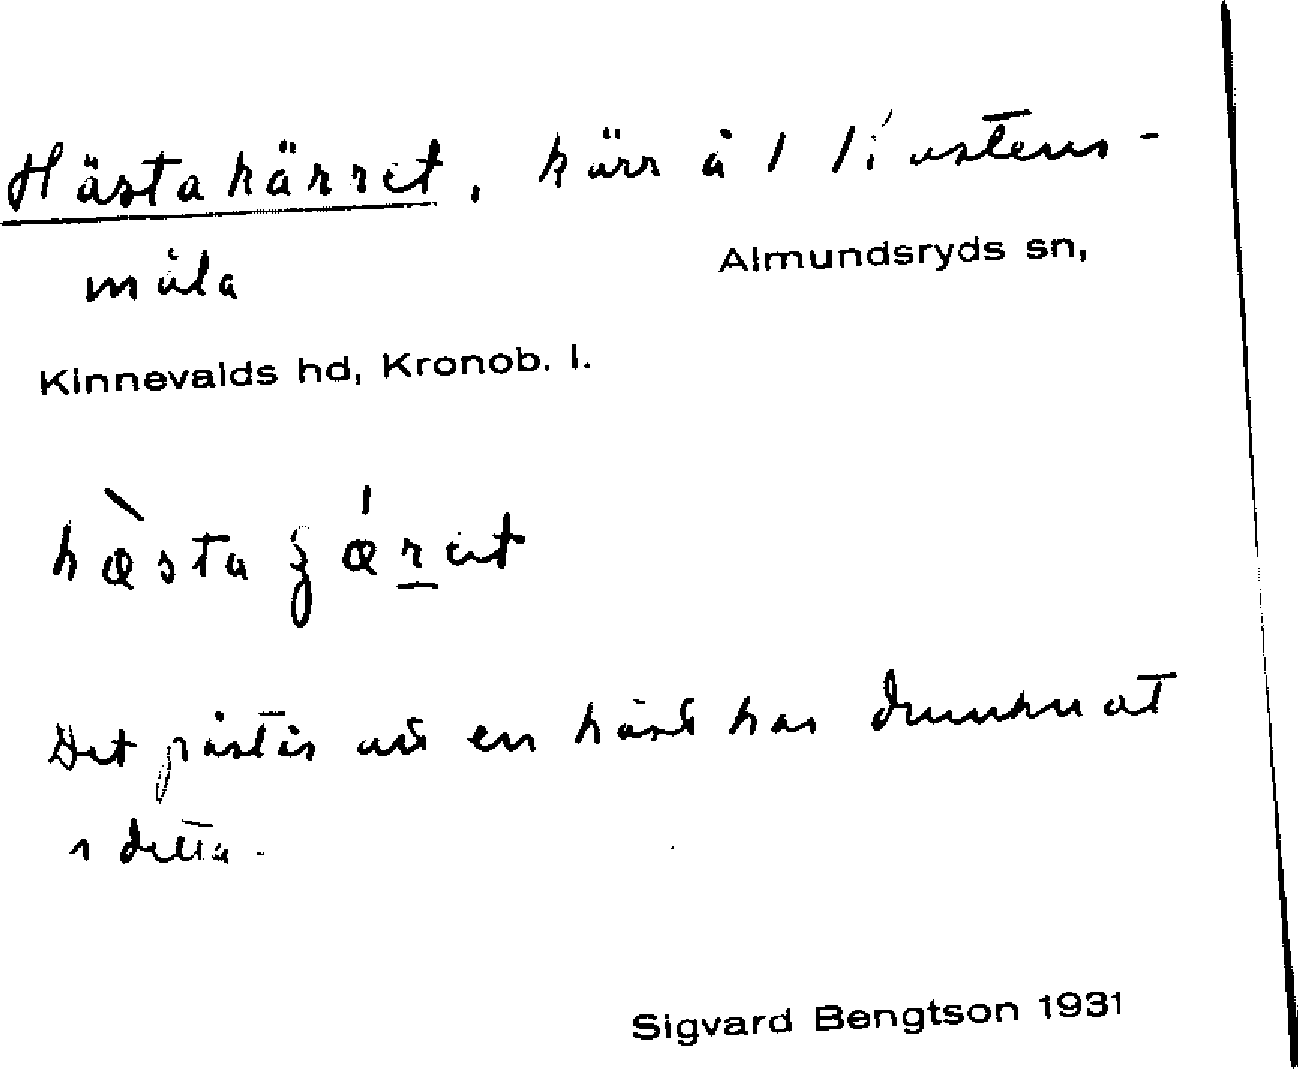 Hästakärret, kärr å 1/1 Kustens-
måla
Almundsryds sn,
Kinnevalds hd, Kronob. l.
Det påstås att en häst har drunknat
i detta.
Sigvard Bengtson 1931